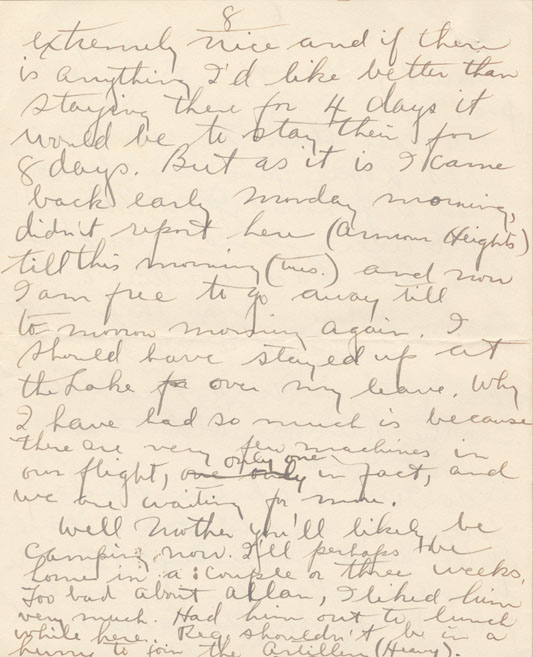 8
extremely nice and if there
is anything I'd like better than
staying there for 4 days it
would be to stay their for
8 days. But as it is I came
back early Monday morning,
didn't report here (Armour Heights)
till this morning (tues.) and now
I am free to go away till
to morrow morning again. I
should have stayed up at
the Lake fo over my leave. Why
I have had so much is because
there are very few machines in
our flight, one only only one in fact, and
we are waiting for more.
Well Mother you'll likely be
Camping now. I'll perhaps be
home in a couple or three weeks.
Too bad about Allan, I liked him
very much. Had him out to lunch
while here. Reg. shouldn't be in a
hurry to join the Artillery (Heavy).